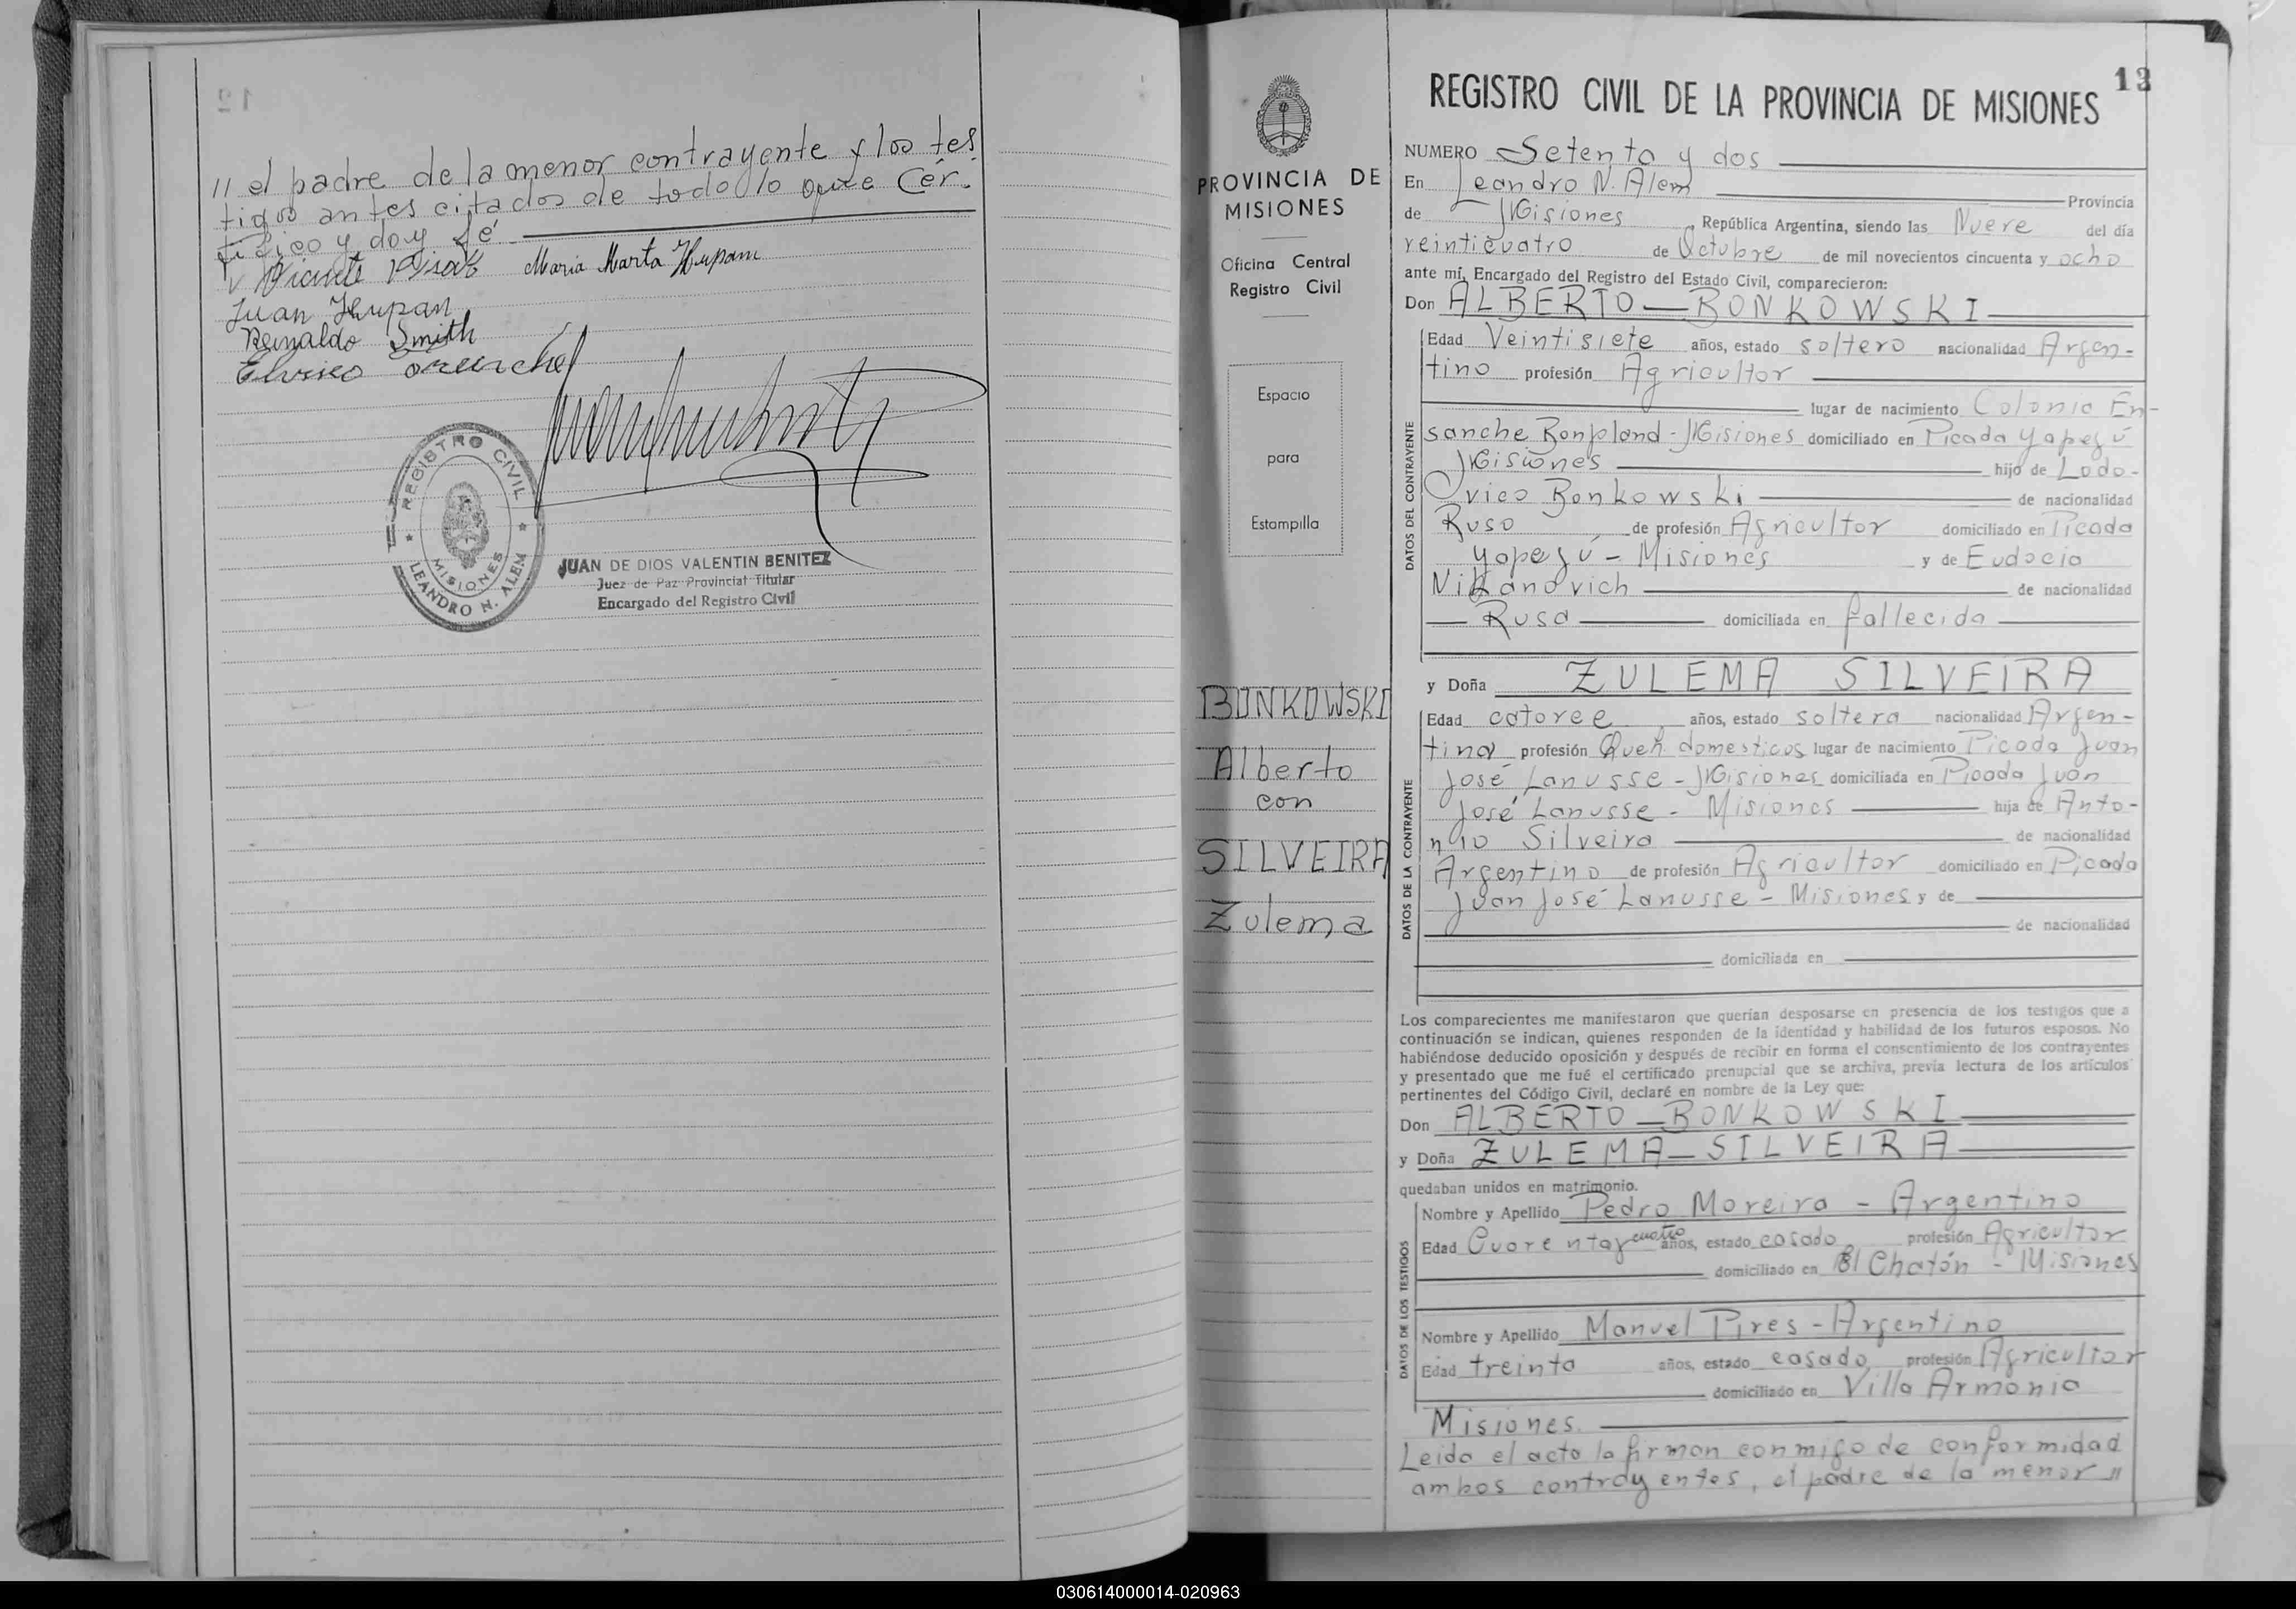 12
// el padre de la menor contrayente y los tes
tigos antes citados de todo lo que Cer-
tifico y doy fé.
Maria Marta Hupan
Juan Hupan
Reinaldo Smith
REGISTRO CIVIL
MISIONES
LEANDRO N. ALEM
JUAN DE DIOS VALENTIN BENITEZ
Juez de Paz Provincial Titular
Encargado del Registro Civil
PROVINCIA DE
MISIONES
Oficina Central
Registro Civil
Espacio
para
Estampilla
BONKOWSKI
Alberto
con
SILVEIRA
Zulema
13
REGISTRO CIVIL DE LA PROVINCIA DE MISIONES
NUMERO Setenta y dos
En Leandro N. Alem Provincia
de Misiones República Argentina, siendo las Nueve del día
veinticuatro de Octubre de mil novecientos cincuenta y ocho
ante mí, Encargado del Registro del Estado Civil, comparecieron:
Don ALBERTO — BONKOWSKI
DATOS DEL CONTRAYENTE
Edad Veintisiete años, estado soltero nacionalidad Argen-
tino profesión Agricultor
lugar de nacimiento Colonia En-
sanche Bonpland - Misiones domiciliado en Picada Yapeyú
Misiones hijo de Lodo-
vico Bonkowski de nacionalidad
Ruso de profesión Agricultor domiciliado en Picada
Yapeyú - Misiones y de Eudocia
Nikanovich de nacionalidad
Rusa domiciliada en fallecida
y Doña ZULEMA SILVEIRA
DATOS DE LA CONTRAYENTE
Edad catorce años, estado soltera nacionalidad Argen-
tina profesión Queh. domesticos lugar de nacimiento Picada Juan
José Lanusse - Misiones domiciliada en Picada Juan
José Lanusse - Misiones hija de Anto-
nio Silveira de nacionalidad
Argentino de profesión Agricultor domiciliado en Picada
Juan José Lanusse - Misiones y de
de nacionalidad
domiciliada en
Los comparecientes me manifestaron que querían desposarse en presencia de los testigos que a
continuación se indican, quienes responden de la identidad y habilidad de los futuros esposos. No
habiéndose deducido oposición y después de recibir en forma el consentimiento de los contrayentes
y presentado que me fué el certificado prenupcial que se archiva, previa lectura de los artículos
pertinentes del Código Civil, declaré en nombre de la Ley que:
Don ALBERTO — BONKOWSKI
y Doña ZULEMA — SILVEIRA
quedaban unidos en matrimonio.
DATOS DE LOS TESTIGOS
Nombre y Apellido Pedro Moreira - Argentino
Edad Cuarenta y cuatro años, estado casado profesión Agricultor
domiciliado en El Chatón - Misiones
Nombre y Apellido Manuel Pires - Argentino
Edad treinta años, estado casado profesión Agricultor
domiciliado en Villa Armonia
Misiones.
Leida el acta la firman conmigo de conformidad
ambos contrayentes, el padre de la menor //
030614000014-020963